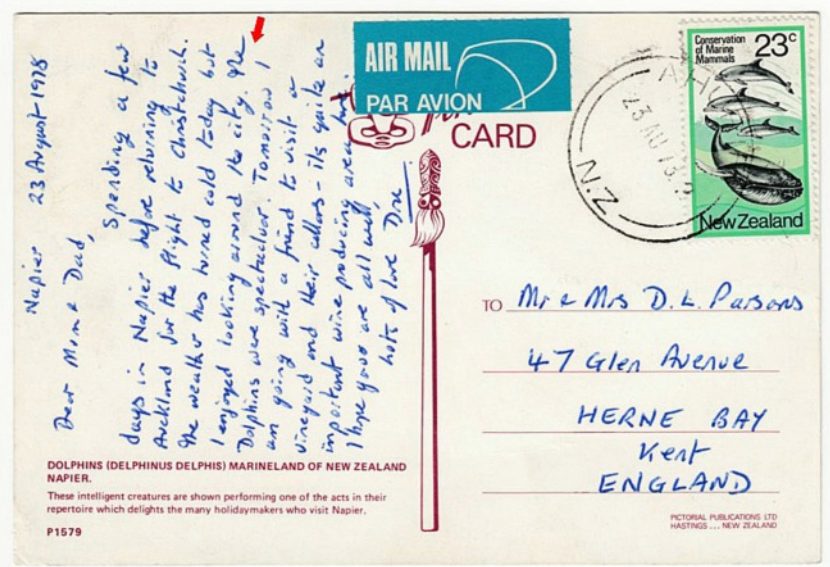 Napier 23 August 1978
Dear Mum & Dad,
Spending a few
days in Napier before returning to
Auckland for the flight to Christchurch.
The weather has turned cold today but
I enjoyed looking around the city. The
Dolphins were spectacular. Tomorrow I
am going with a friend to visit a
vineyard and their cellars - its quite an
important wine producing area here.
I hope you are all well,
Lots of love
AIR MAIL
PAR AVION
CARD
Conservation
of Marine
Mammals
23c
New Zealand
N.Z.
23 AU 78
TO Mr & Mrs D. L. Parsons
47 Glen Avenue
HERNE BAY
Kent
ENGLAND
DOLPHINS (DELPHINUS DELPHIS) MARINELAND OF NEW ZEALAND
NAPIER.
These intelligent creatures are shown performing one of the acts in their
repertoire which delights the many holidaymakers who visit Napier.
P1579
PICTORIAL PUBLICATIONS LTD
HASTINGS ... NEW ZEALAND